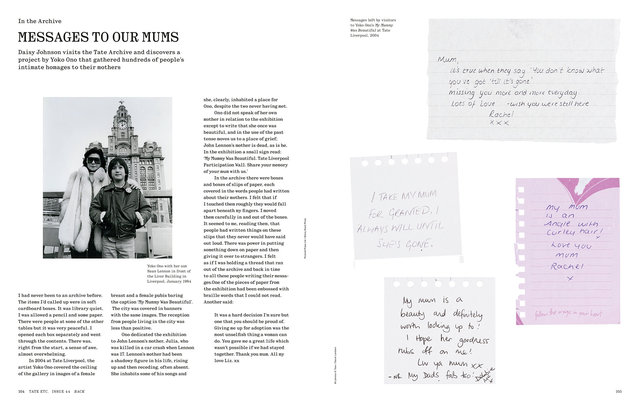 In the Archive
MESSAGES TO OUR MUMS
Daisy Johnson visits the Tate Archive and discovers a
project by Yoko Ono that gathered hundreds of people's
intimate homages to their mothers
Yoko Ono with her son
Sean Lennon in front of
the Liver Building in
Liverpool, January 1984
I had never been to an archive before.
The items I'd called up were in soft
cardboard boxes. It was library quiet.
I was allowed a pencil and some paper.
There were people at some of the other
tables but it was very peaceful. I
opened each box separately and went
through the contents. There was,
right from the start, a sense of awe,
almost overwhelming.
In 2004 at Tate Liverpool, the
artist Yoko Ono covered the ceiling
of the gallery in images of a female
breast and a female pubis baring
the caption 'My Mummy Was Beautiful'.
The city was covered in banners
with the same images. The reception
from people living in the city was
less than positive.
Ono dedicated the exhibition
to John Lennon's mother, Julia, who
was killed in a car crash when Lennon
was 17. Lennon's mother had been
a shadowy figure in his life, rising
up and then receding, often absent.
She inhabits some of his songs and
she, clearly, inhabited a place for
Ono, despite the two never having met.
Ono did not speak of her own
mother in relation to the exhibition
except to write that she once was
beautiful, and in the use of the past
tense moves us to a place of grief.
John Lennon's mother is dead, as is he.
In the exhibition a small sign read:
'My Mummy Was Beautiful. Tate Liverpool
Participation Wall: Share your memory
of your mum with us.'
In the archive there were boxes
and boxes of slips of paper, each
covered in the words people had written
about their mothers. I felt that if
I touched them roughly they would fall
apart beneath my fingers. I moved
them carefully in and out of the boxes.
It seemed to me, reading them, that
people had written things on these
slips that they never would have said
out loud. There was power in putting
something down on paper and then
giving it over to strangers. I felt
as if I was holding a thread that ran
out of the archive and back in time
to all these people writing their messa-
ges. One of the pieces of paper from
the exhibition had been embossed with
braille words that I could not read.
Another said:
It was a hard decision I'm sure but
one that you should be proud of.
Giving me up for adoption was the
most unselfish thing a woman can
do. You gave me a great life which
wasn't possible if we had stayed
together. Thank you mum. All my
love Liz. xx
TATE ETC. ISSUE 44 BACK
Messages left by visitors
to Yoko Ono's My Mummy
Was Beautiful at Tate
Liverpool, 2004
Mum,
it's true when they say 'You don't know what
you've got 'till it's gone'.
missing you more and more everyday.
Lots of Love - wish you were still here
Rachel
x x x
I TAKE MY MUM
FOR GRANTED. I
ALWAYS WILL UNTIL
SHE'S GONE.
my mum
is an
Angle with
curley Hair!
LOVE you
mum
Rachel
x
My mum is a
beauty and definitely
worth looking up to!
I Hope her goodness
rubs off on me!
Luv ya mum xx
My Dads fab too!